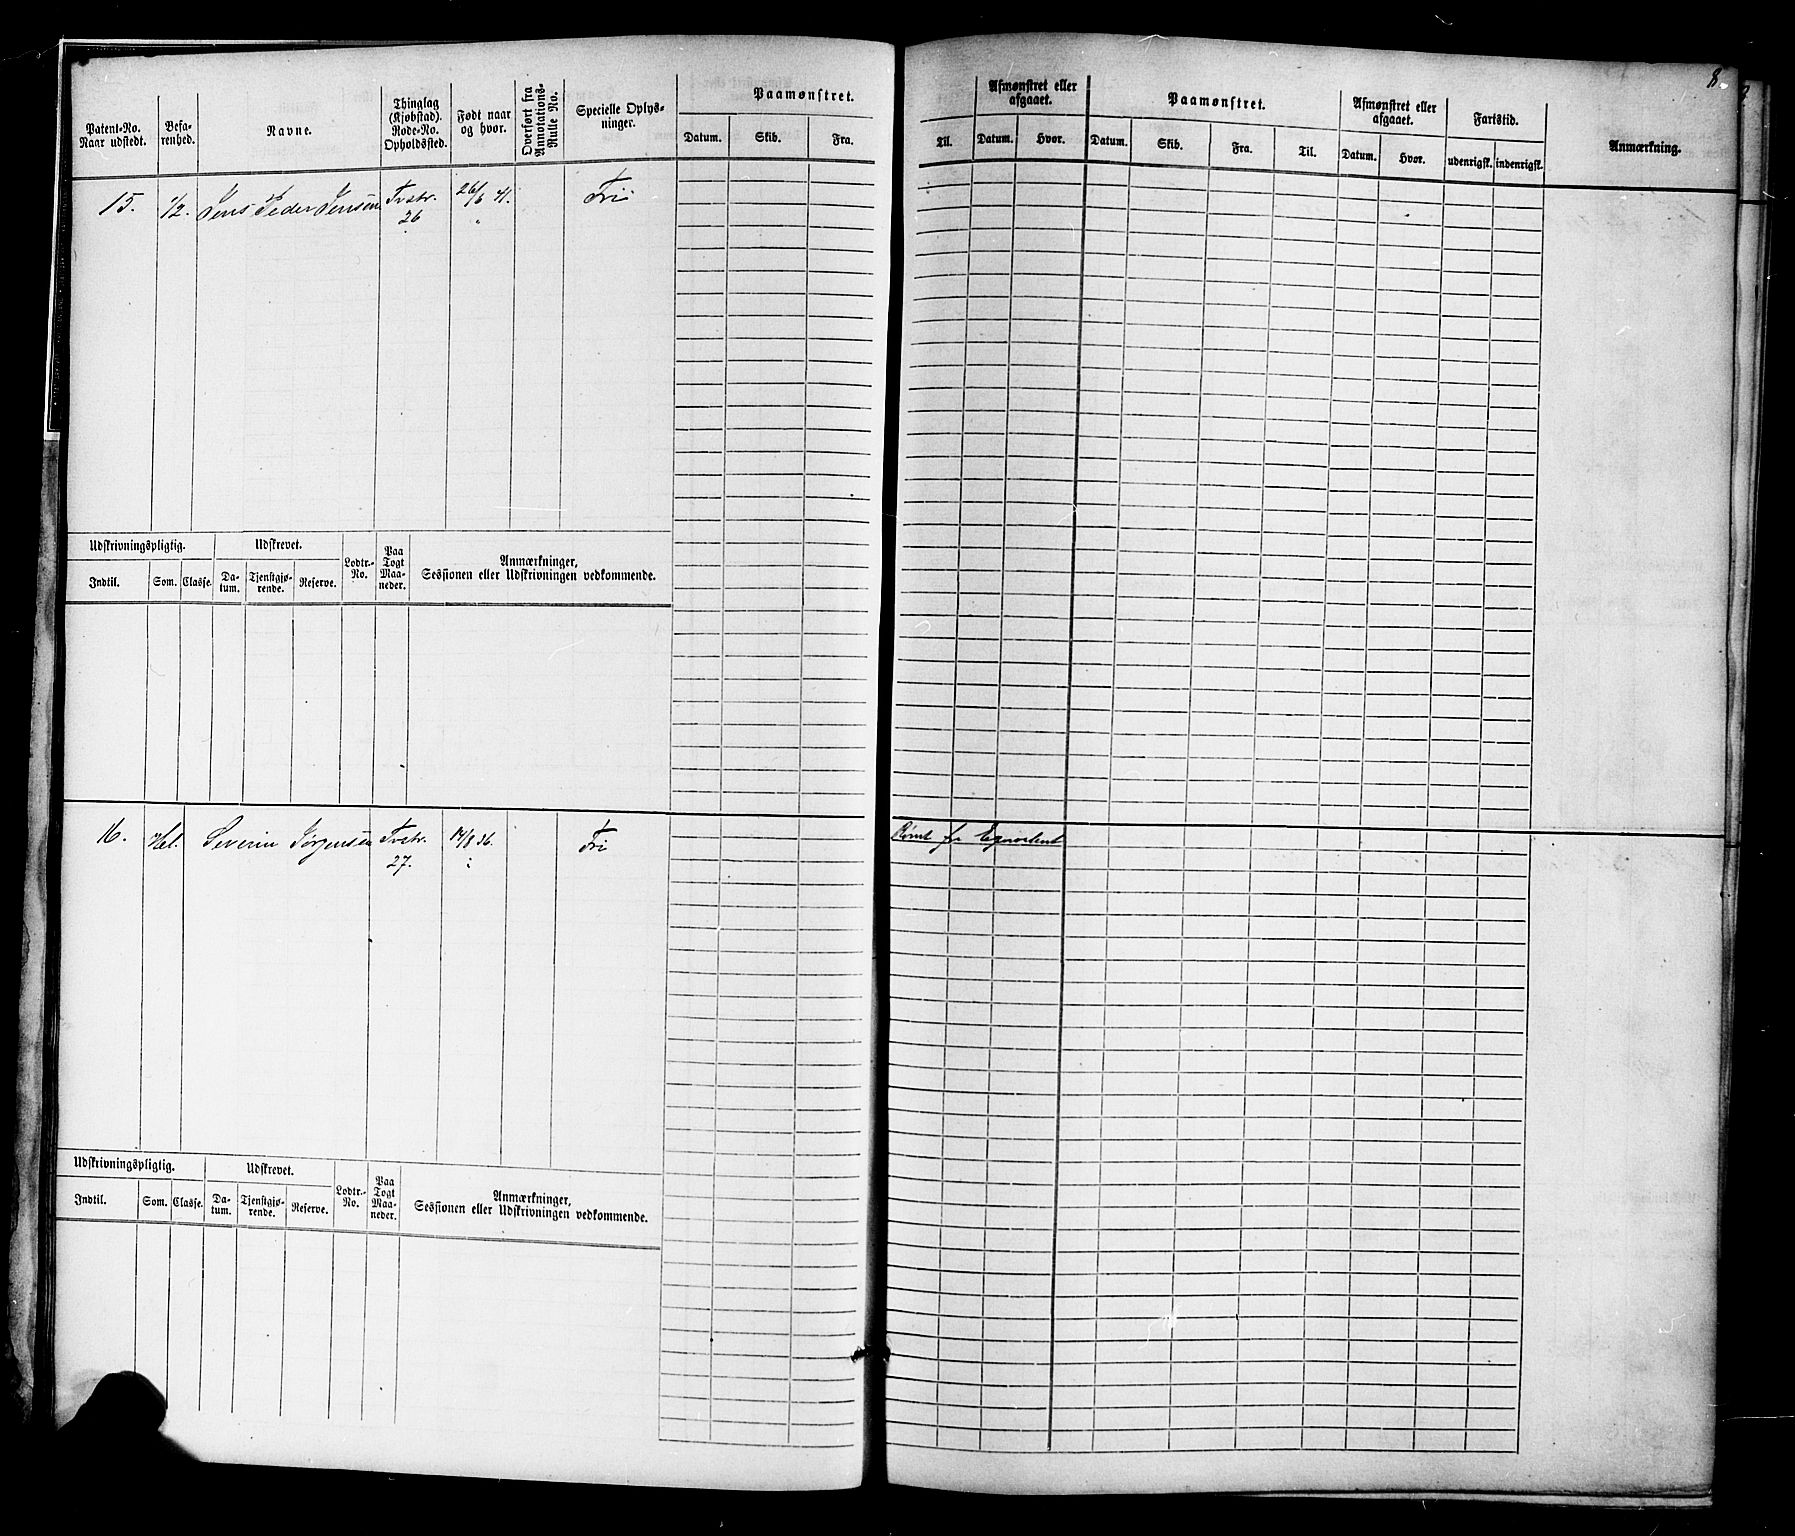 8.
Patent-No.
Naar udstedt.
Befa-
renhed.
Navne.
Thinglag
(Kjøbstad).
Rode-No.
Opholdssted.
Født naar
og hvor.
Overført fra
Annotations-
Rulle No.
Specielle Oplys-
ninger.
Paamønstret.
Datum. Skib. Fra.
Til.
Afmønstret eller
afgaaet.
Datum. Hvor.
Paamønstret.
Datum. Skib. Fra. Til.
Afmønstret eller
afgaaet.
Datum. Hvor.
Fartstid.
udenrigsk. indenrigsk.
Anmærkning.
15. 1/2. Jens Peder Jensen Tvstr. 26/6 41. Fri
26 "
Udskrivningspligtig. Udskrevet.
Indtil. Som. Classe. Da-
tum. Tjenstgjø-
rende. Reserve.
Lodtr.-
No.
Paa
Togt
Maa-
neder.
Anmærkninger,
Sessionen eller Udskrivningen vedkommende.
16. Hel. Severin Jørgensen Tvstr. 14/8 36. Fri
27. "
Rømt fr
Udskrivningspligtig. Udskrevet.
Indtil. Som. Classe. Da-
tum. Tjenstgjø-
rende. Reserve.
Lodtr.-
No.
Paa
Togt
Maa-
neder.
Anmærkninger,
Sessionen eller Udskrivningen vedkommende.